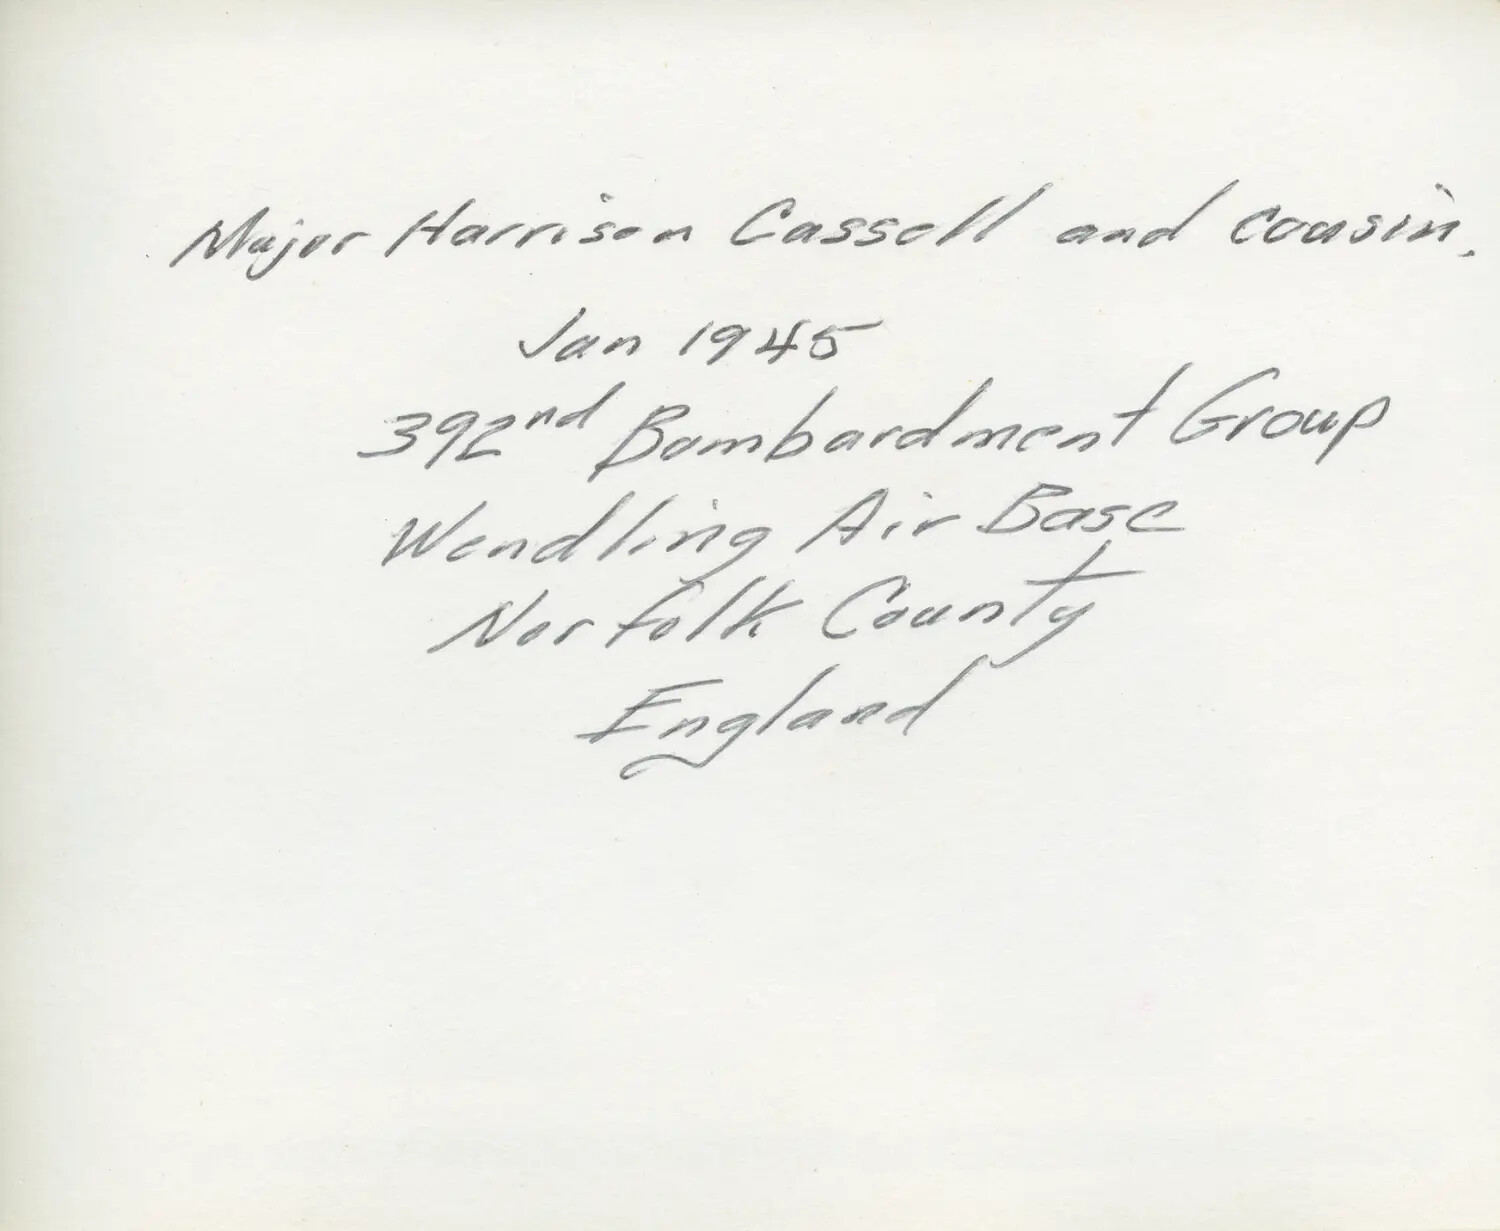 Major Harrison Cassell and cousin.
Jan 1945
392nd Bombardment Group
Wendling Air Base
Norfolk County
England